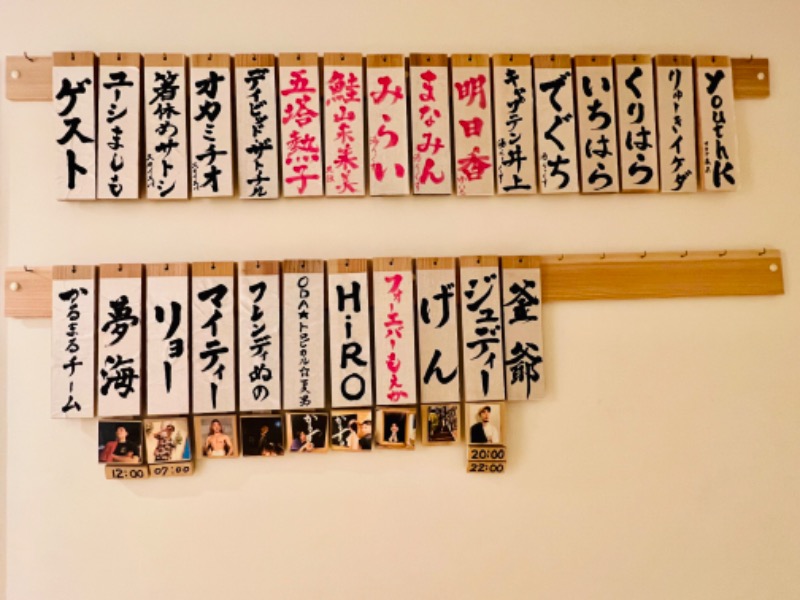 ゲスト
ユーシましも
箸休めサトシ
オカミチオ
デイビッドザトナル
五塔熱子
鮭山未来美
みらい
まなみん
明日香
キャプテン井上
でぐち
いちはら
くりはら
りゅーとぎイケダ
YouthK
かるまるチーム
夢海
リョー
マイティー
フレンディぬの
ODA☆トロピカル☆夏男
HiRO
フォーエバーもえか
げん
ジュディー
釜爺
12:00
07:00
20:00
22:00